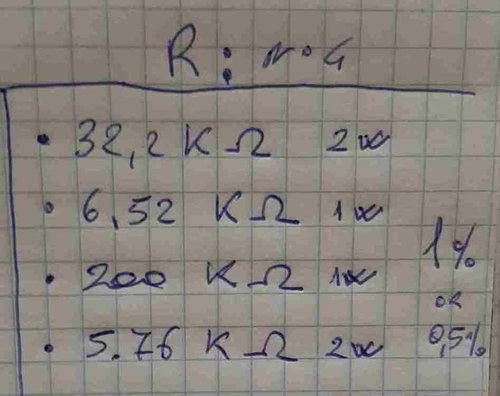 R: n.4
• 32,2 KΩ 2x
• 6,52 KΩ 1x
• 200 KΩ 1x
• 5.76 KΩ 2x
1%
or
0,5%